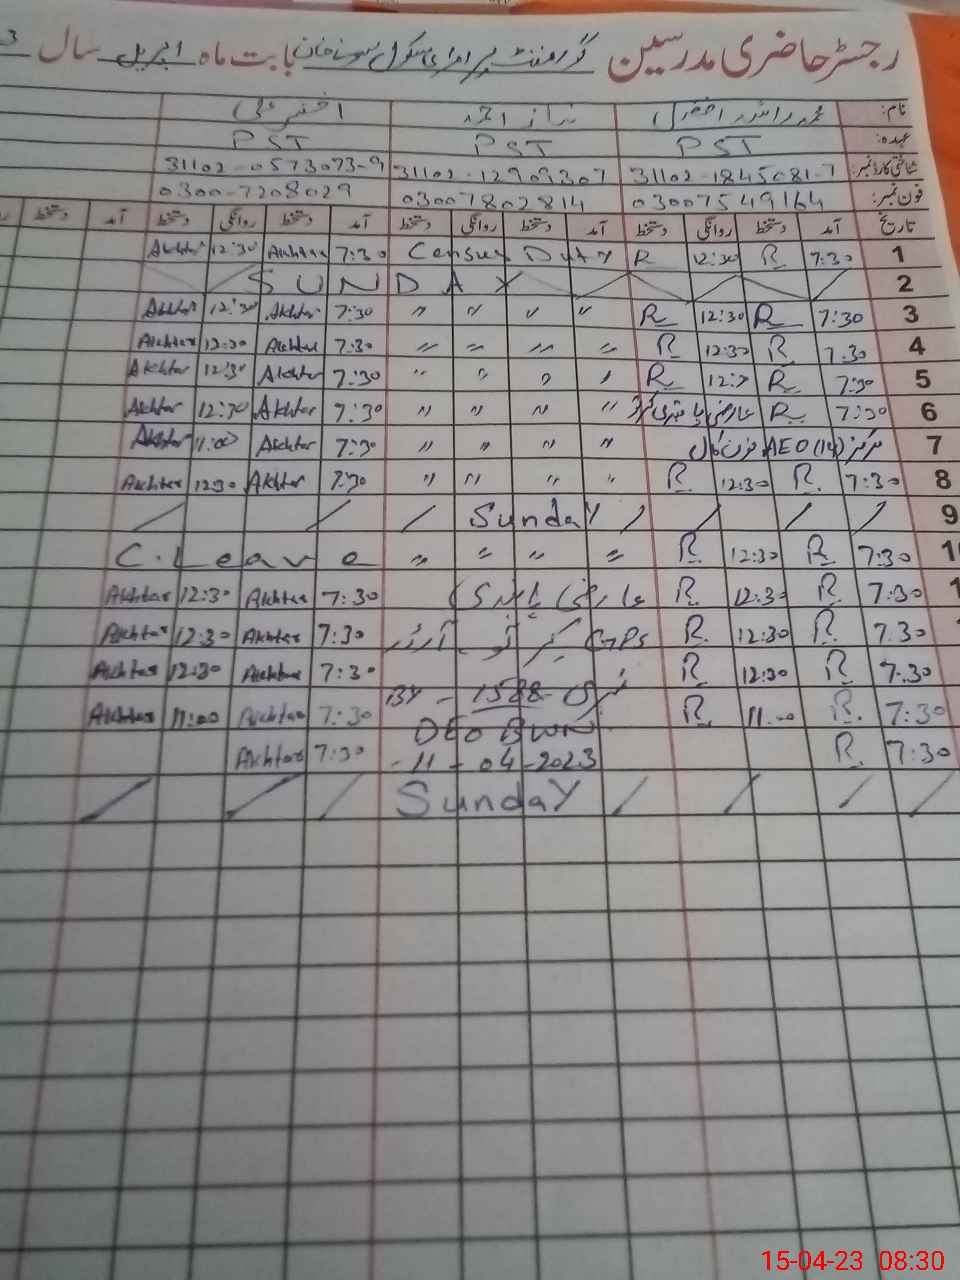 رجسٹر حاضری مدرسین گورنمنٹ پرائمری سکول بابت ماہ اپریل سال 3
نام: محمد راشد اختر نیاز احمد اختر علی
عہدہ: PST PST PST
شناختی کارڈ نمبر: 31102-1845081-7 31102-12903307 31102-0573073-9
فون نمبر: 03007549164 03007802814 0300-7208029
تاریخ آمد دستخط روانگی دستخط آمد دستخط روانگی دستخط آمد دستخط روانگی دستخط آمد دستخط
1 7:30 R 12:30 R Census Duty 7:30 Akhtar 12:30 Akhtar
2 SUNDAY
3 7:30 R 12:30 R " " " " 7:30 Akhtar 12:30 Akhtar
4 7:30 R 12:30 R " " " " 7:30 Akhtar 12:30 Akhtar
5 7:30 R 12:30 R " " " " 7:30 Akhtar 12:30 Akhtar
6 7:30 R عارضی " " " " 7:30 Akhtar 12:30 Akhtar
7 مرکز AEO (14) " " " " 7:30 Akhtar 11:00 Akhtar
8 7:30 R 12:30 R " " " " 7:30 Akhtar 12:30 Akhtar
9 Sunday
10 7:30 R 12:30 R " " " " C. Leave
1 7:30 R 12:30 R عارضی پابندی 7:30 Akhtar 12:30 Akhtar
7:30 R 12:30 R GPS آرڈر 7:30 Akhtar 12:30 Akhtar
7:30 R 12:30 R نمبر 1588-15 7:30 Akhtar 12:30 Akhtar
7:30 R 11:00 R DEO BWN 7:30 Akhtar 11:00 Akhtar
7:30 R 11-04-2023 7:30 Akhtar
Sunday
15-04-23 08:30